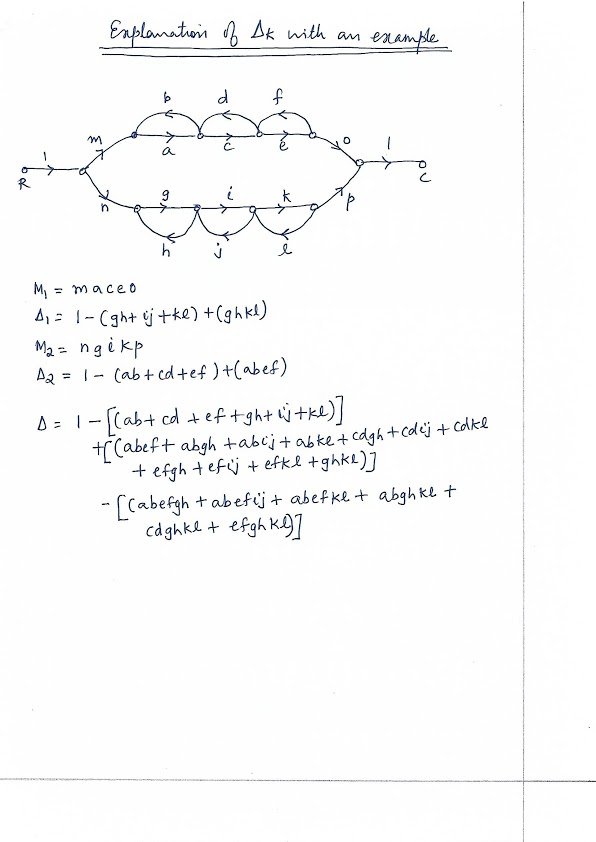 Explanation of Δk with an example
b d f
m a c e o
1 1
R C
n g i k p
h j l
M₁ = maceo
Δ₁ = 1 - (gh + ij + kl) + (ghkl)
M₂ = ngikp
Δ₂ = 1 - (ab + cd + ef) + (abef)
Δ = 1 - [(ab + cd + ef + gh + ij + kl)]
+ [(abef + abgh + abij + abke + cdgh + cdij + cdkl
+ efgh + efij + efkl + ghkl)]
- [(abefgh + abefij + abefkl + abghkl +
cdghkl + efghkl)]